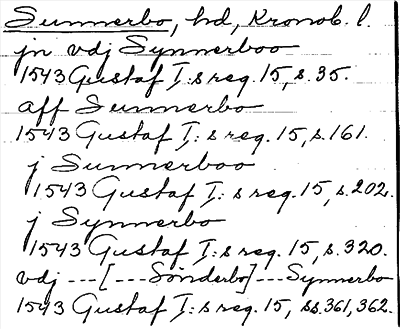 Sunnerbo, hd, Kronob. l.
jn vdj Synnerboo
1543 Gustaf I:s reg. 15, s. 35.
aff Sunnerbo
1543 Gustaf I:s reg. 15, s. 161.
j Sunnerboo
1543 Gustaf I:s reg. 15, s. 202.
j Synnerbo
1543 Gustaf I:s reg. 15, s. 320.
vdj --- [---Sönderbo] --- Synnerbo
1543 Gustaf I:s reg. 15, ss. 361, 362.